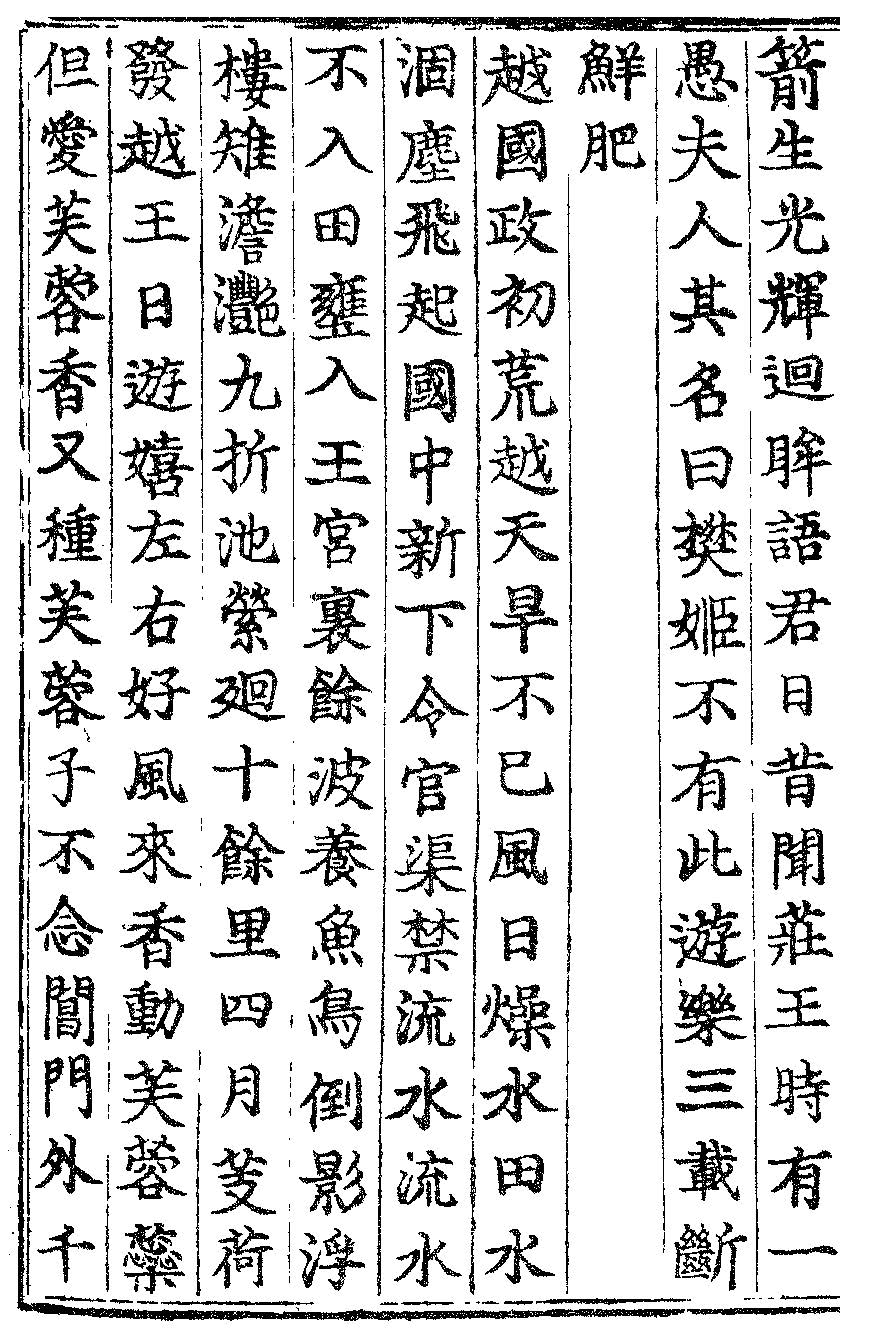 箭生光輝迴眸語君日昔聞莊王時有一
愚夫人其名曰樊姬不有此遊樂三載斷
鮮肥
越國政初荒越天旱不已風日燥水田水
涸塵飛起國中新下令官渠禁流水流水
不入田壅入王宮裏餘波養魚鳥倒影浮
樓雉澹灩九折池縈廻十餘里四月芰荷
發越王日遊嬉左右好風來香動芙蓉蘂
但愛芙蓉香又種芙蓉子不念閶門外千